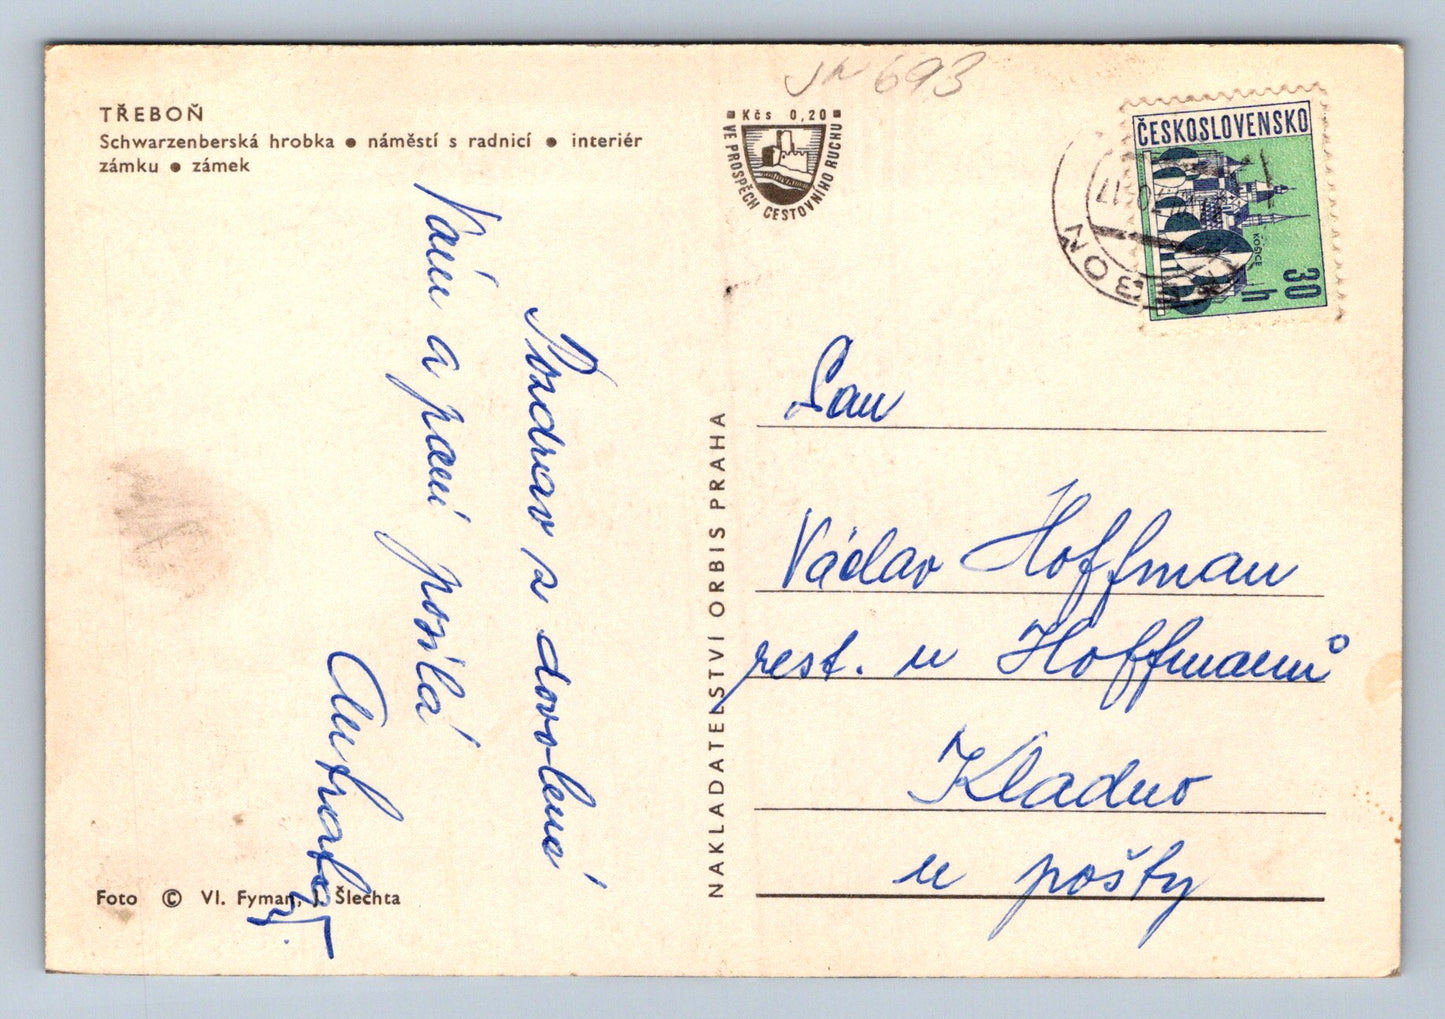 TŘEBOŇ
Schwarzenberská hrobka ● náměstí s radnicí ● interiér
zámku ● zámek
Kčs 0,20
VE PROSPĚCH CESTOVNÍHO RUCHU
693
ČESKOSLOVENSKO
KOŠICE
30
h
Pozdrav z dovolené
Vám a paní posílá
NAKLADATELSTVÍ ORBIS PRAHA
Pan
Václav Hoffman
rest. u Hoffmanů
Kladno
u pošty
Foto © Vl. Fyman, J. Šlechta